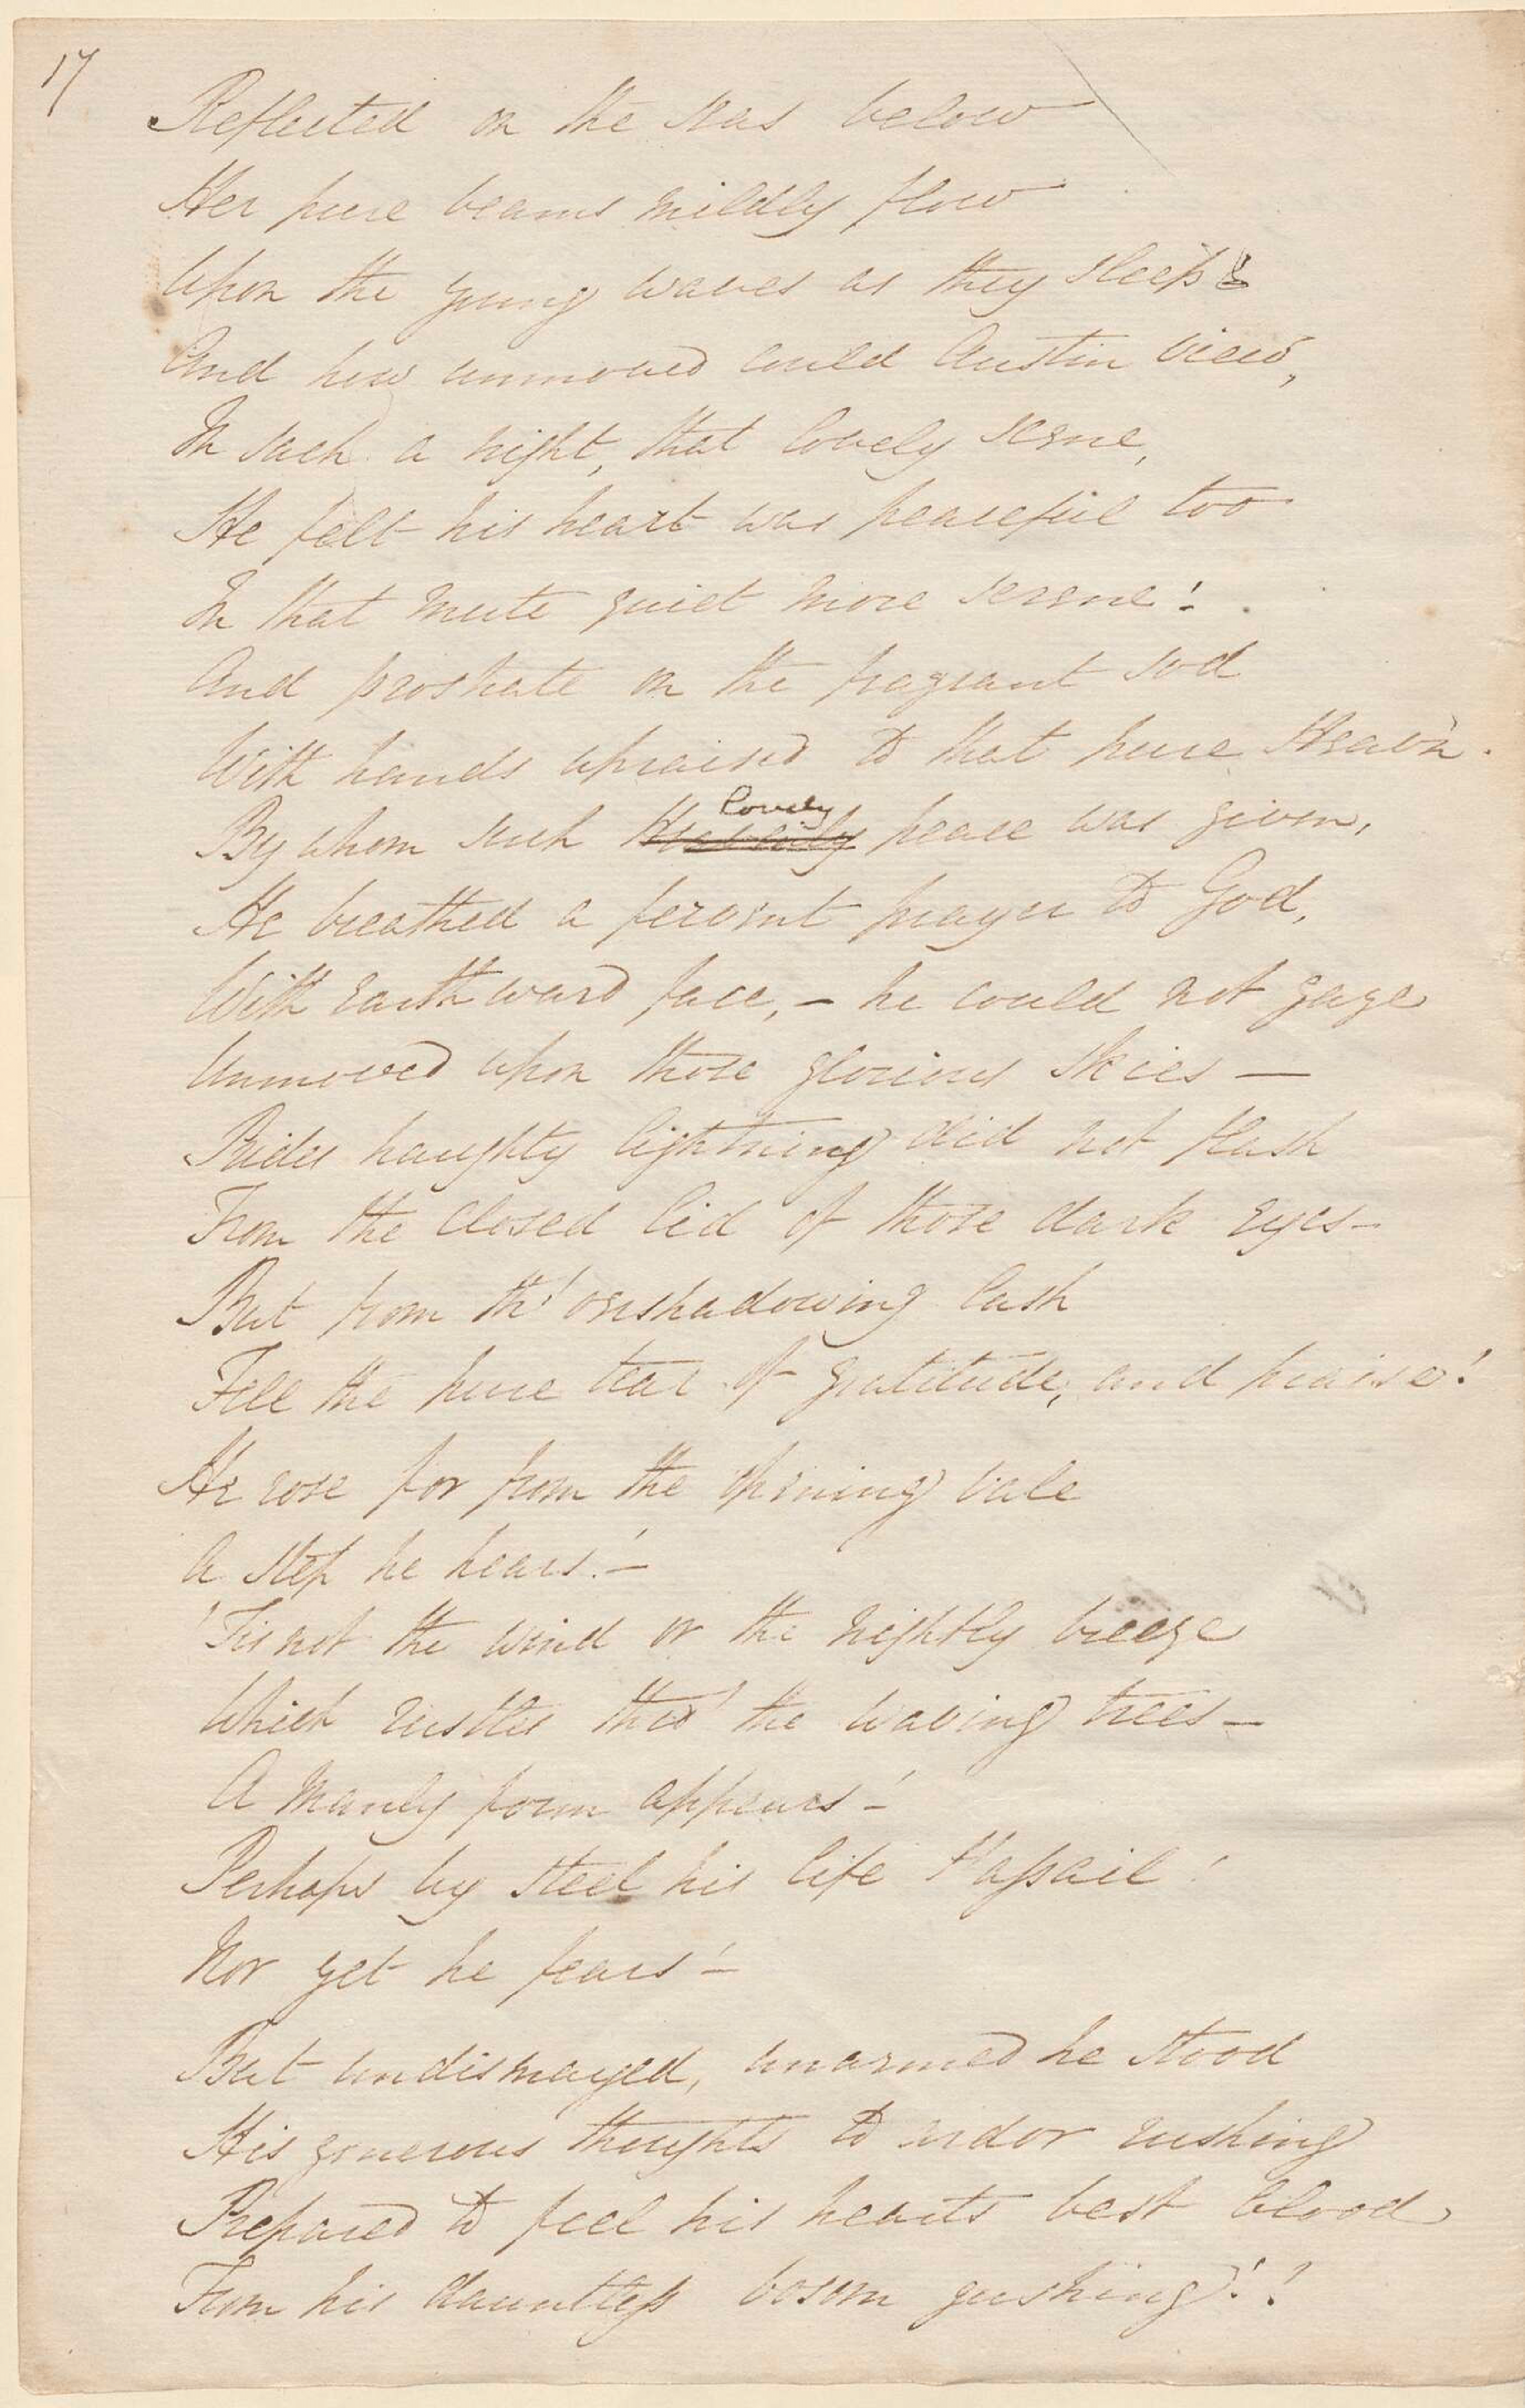 17
Reflected on the seas below
Her pure beams mildly flow
Upon the young waves as they sleep!
And how unmoved could Austin view,
In such a night, that lovely scene,
He felt his heart was peaceful too
In that mute quiet more serene!
And prostrate on the fragrant sod
With hands upraised to that pure Heav'n.
lovely
By whom such Heavenly peace was given,
He breathed a fervent prayer to God,
With earthward face, – he could not gaze
Unmoved upon those glorious skies –
Prides haughty lightning did not flash
From the closed lid of those dark eyes –
But from th' o'ershadowing lash
Fell the pure tear of gratitude, and praise!
He rose for from the opening vale
A step he hears! –
'Tis not the wind or the nightly breeze
Which rustles thro' the waving trees –
A manly form appears! –
Perhaps by steel his life t'assail!
Nor yet he fears! –
But undismayed, unarmed he stood
His generous thoughts to ardor rushing
Prepared to feel his hearts best blood
From his dauntless bosom gushing!!